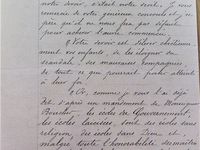 notre devoir, c'était notre droit. Je vous
remercie de votre généreux concours
père qu'il ne nous fera pas défaut
pour achever l'œuvre commencée.
Votre devoir est d'élever chrétiennement
vos enfants, de les éloigner du
scandale, des mauvaises compagnies
de tout ce qui pourrait porter atteinte
à leur foi.
Or, comme je vous l'ai déjà
dit d'après un mandement de Monseigneur
les écoles du Gouvernement,
les écoles laïcisées, sont des écoles sans
religion, des écoles sans Dieu et,
malgré toute l'honorabilité des maîtres